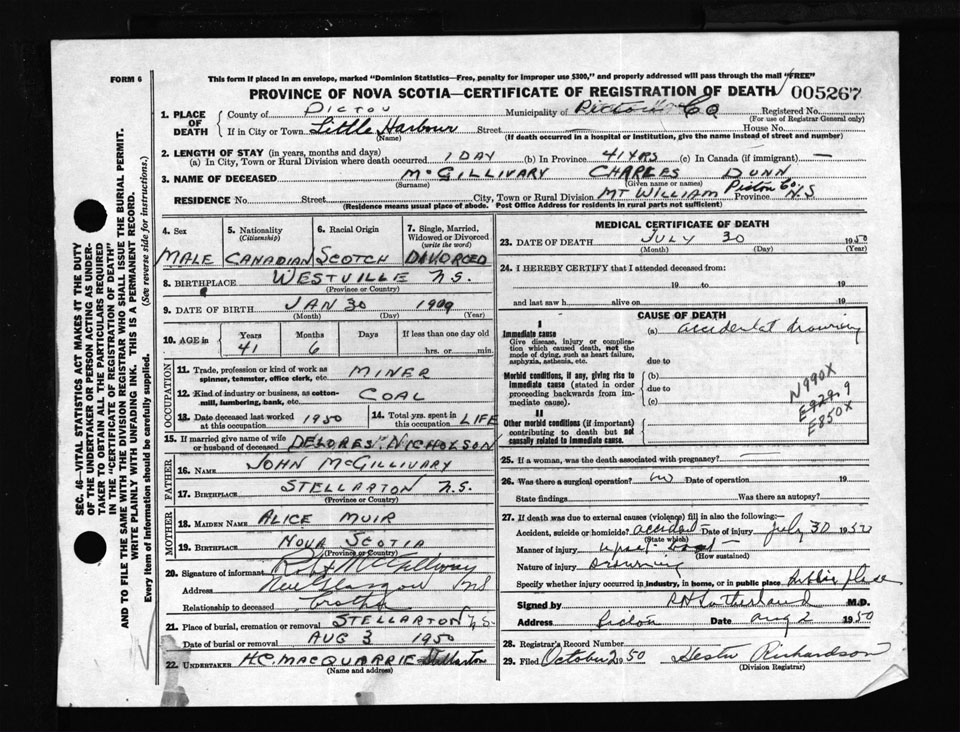 FORM 6
This form if placed in an envelope, marked "Dominion Statistics—Free, penalty for improper use $300," and properly addressed will pass through the mail "FREE"
PROVINCE OF NOVA SCOTIA—CERTIFICATE OF REGISTRATION OF DEATH 005267
1. PLACE OF DEATH
County of PICTOU Municipality of Pictou Co Registered No.
(For use of Registrar General only)
If in City or Town Little Harbour Street House No.
(Name) (If death occurred in a hospital or institution, give the name instead of street and number)
2. LENGTH OF STAY (in years, months and days)
(a) In City, Town or Rural Division where death occurred 1 DAY (b) In Province 41 YRS (c) In Canada (if immigrant) —
3. NAME OF DECEASED McGILLIVARY CHARLES DUNN
(Surname) (Given name or names)
RESIDENCE No. Street City, Town or Rural Division MT WILLIAM Pictou Co Province N.S
(Residence means usual place of abode. Post Office Address for residents in rural parts not sufficient)
4. Sex MALE
5. Nationality (Citizenship) CANADIAN
6. Racial Origin SCOTCH
7. Single, Married, Widowed or Divorced (write the word) DIVORCED
8. BIRTHPLACE WESTVILLE N.S.
(Province or Country)
9. DATE OF BIRTH JAN 30 1909
(Month) (Day) (Year)
10. AGE in Years 41 Months 6 Days If less than one day old hrs. or min.
OCCUPATION
11. Trade, profession or kind of work as spinner, teamster, office clerk, etc. MINER
12. Kind of industry or business, as cotton-mill, lumbering, bank, etc. COAL
13. Date deceased last worked at this occupation 1950
14. Total yrs. spent in this occupation LIFE
15. If married give name of wife or husband of deceased DELORES NICHOLSON
FATHER
16. NAME JOHN McGILLIVARY
17. BIRTHPLACE STELLARTON N.S.
(Province or Country)
MOTHER
18. MAIDEN NAME ALICE MUIR
19. BIRTHPLACE NOVA SCOTIA
(Province or Country)
20. Signature of informant McGillivary
Address New Glasgow NS
Relationship to deceased Brother
21. Place of burial, cremation or removal STELLARTON N.S.
Date of burial or removal AUG 3 1950
22. UNDERTAKER H.C. MACQUARRIE Stellarton
(Name and address)
MEDICAL CERTIFICATE OF DEATH
23. DATE OF DEATH JULY 30 1950
(Month) (Day) (Year)
24. I HEREBY CERTIFY that I attended deceased from:
19 to 19
and last saw h alive on 19
CAUSE OF DEATH
I
Immediate cause (a) accidental drowning
Give disease, injury or complication which caused death, not the mode of dying, such as heart failure, asphyxia, asthenia, etc.
due to
Morbid conditions, if any, giving rise to immediate cause (stated in order proceeding backwards from immediate cause).
(b)
due to
(c)
N990X
E929.9
E850X
II
Other morbid conditions (if important) contributing to death but not causally related to immediate cause.
25. If a woman, was the death associated with pregnancy? —
26. Was there a surgical operation? no Date of operation 19
State findings Was there an autopsy?
27. If death was due to external causes (violence) fill in also the following:
Accident, suicide or homicide? accident Date of injury July 30 1950
(State which)
Manner of injury upset boat
(How sustained)
Nature of injury Drowning
Specify whether injury occurred in industry, in home, or in public place Public place
Signed by R H Sutherland M.D.
Address Pictou Date Aug 2 1950
28. Registrar's Record Number
29. Filed October 2 1950 Hester Richardson
(Division Registrar)
SEC. 46—VITAL STATISTICS ACT MAKES IT THE DUTY
OF THE UNDERTAKER OR PERSON ACTING AS UNDER-
TAKER TO OBTAIN ALL THE PARTICULARS REQUIRED
IN THE "CERTIFICATE OF REGISTRATION OF DEATH"
AND TO FILE THE SAME WITH THE DIVISION REGISTRAR WHO SHALL ISSUE THE BURIAL PERMIT.
WRITE PLAINLY WITH UNFADING INK. THIS IS A PERMANENT RECORD.
Every item of information should be carefully supplied. (See reverse side for instructions.)